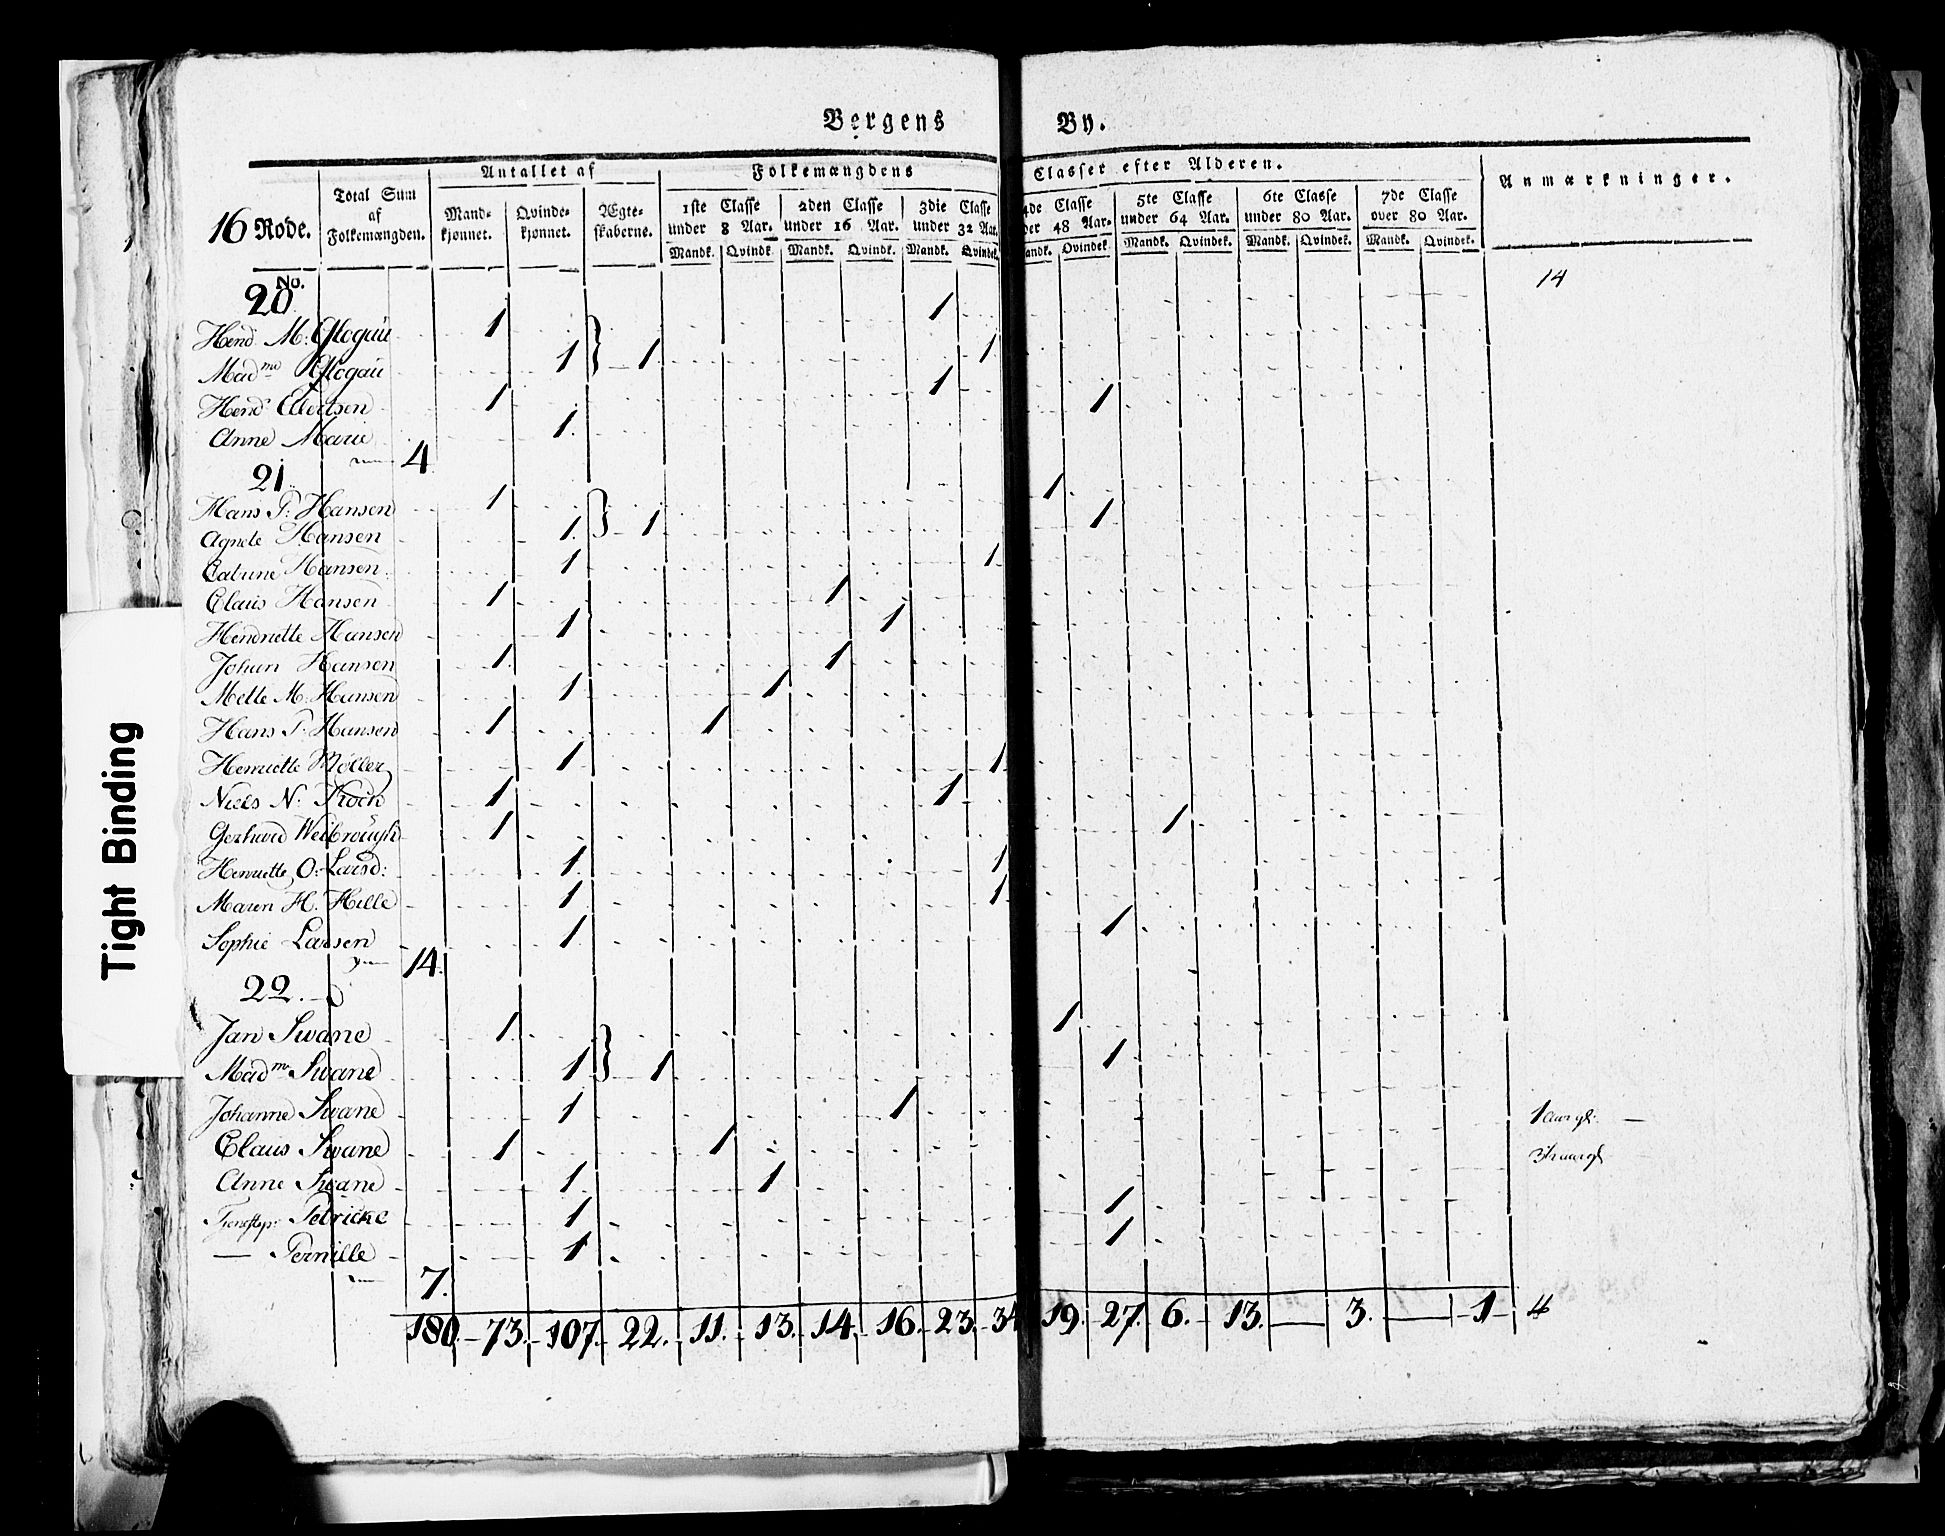 Bergens By.
16 Rode. Total Sum af Folkemængden. Antallet af Folkemængdens Classer efter Alderen. Anmærkninger.
Mandkjønnet. Qvindekjønnet. Ægteskaberne. 1ste Classe under 8 Aar. 2den Classe under 16 Aar. 3die Classe under 32 Aar. 4de Classe 48 Aar. 5te Classe under 64 Aar. 6te Classe under 80 Aar. 7de Classe over 80 Aar.
Mandk. Qvindk. Mandk. Qvindk. Mandk. Qvindek. Mandk. Qvindek. Mandk. Qvindek. Mandk. Qvindek. Mandk. Qvindek.
No.
20 14
Hend. M: Glogau 1 1
Madme Glogau 1 } 1 1
Hend Edertsen 1 1
Anne Marie 1 1
4
21
Hans P: Hansen 1 1
Agnete Hansen 1 } 1 1
Catrine Hansen 1 1
Claus Hansen 1 1
Hendriette Hansen 1 1
Johan Hansen 1 1
Mette M: Hansen 1 1
Hans P: Hansen 1 1
Henriette Møller 1 1
Niels N: Kroch 1 1
Gerhard 1 1
Henriette O: Larsd: 1 1
Maren H. Hille 1 1
Sophie Larsen 1 1
14
22.
Jan Swane 1 1
Madm Swane 1 } 1 1
Johanne Swane 1 1
Claus Swane 1 1
Anne Swane 1 1
Petricke 1 1
— Pernille 1 1
7.
180. 73. 107. 22. 11. 13. 14. 16. 23. 34 19. 27. 6. 13. — 3. — 1 4
Tight Binding